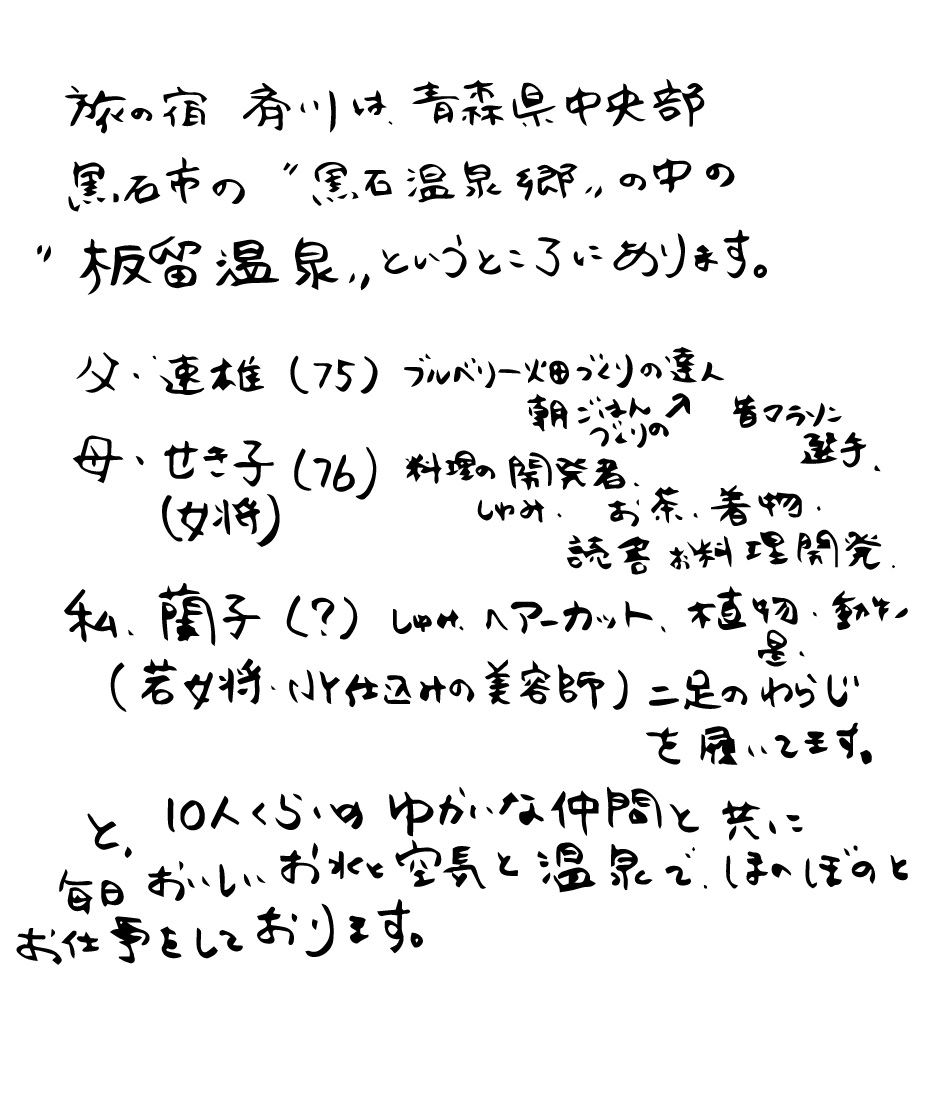 旅の宿 斉川は、青森県中央部
黒石市の〝黒石温泉郷〟の中の
〝板留温泉〟というところにあります。
父・速雄(75) ブルベリー畑づくりの達人
朝ごはんづくりの↗ 昔マラソン選手、
母・せき子(76) 料理の開発者、
(女将) しゅみ、お茶、着物、
読書 お料理開発、
私、蘭子(?) しゅみ、ヘアーカット、植物・動物
星、
(若女将・小Y仕込みの美容師) 二足のわらじ
を履いてます。
と、10人くらいの ゆかいな仲間と 共に
毎日 おいしいお水と空気と温泉で、ほのぼのと
お仕事をしております。